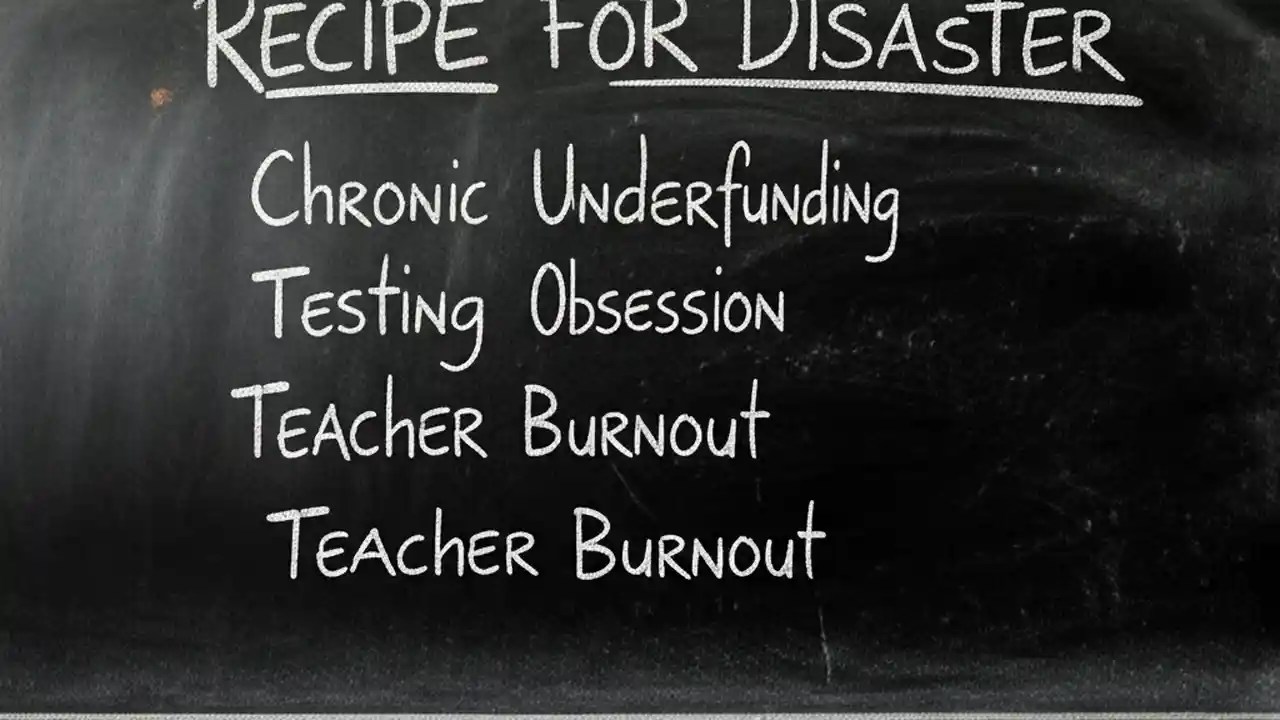 RECIPE FOR DISASTER
Chronic Underfunding
Testing Obsession
Teacher Burnout
Teacher Burnout